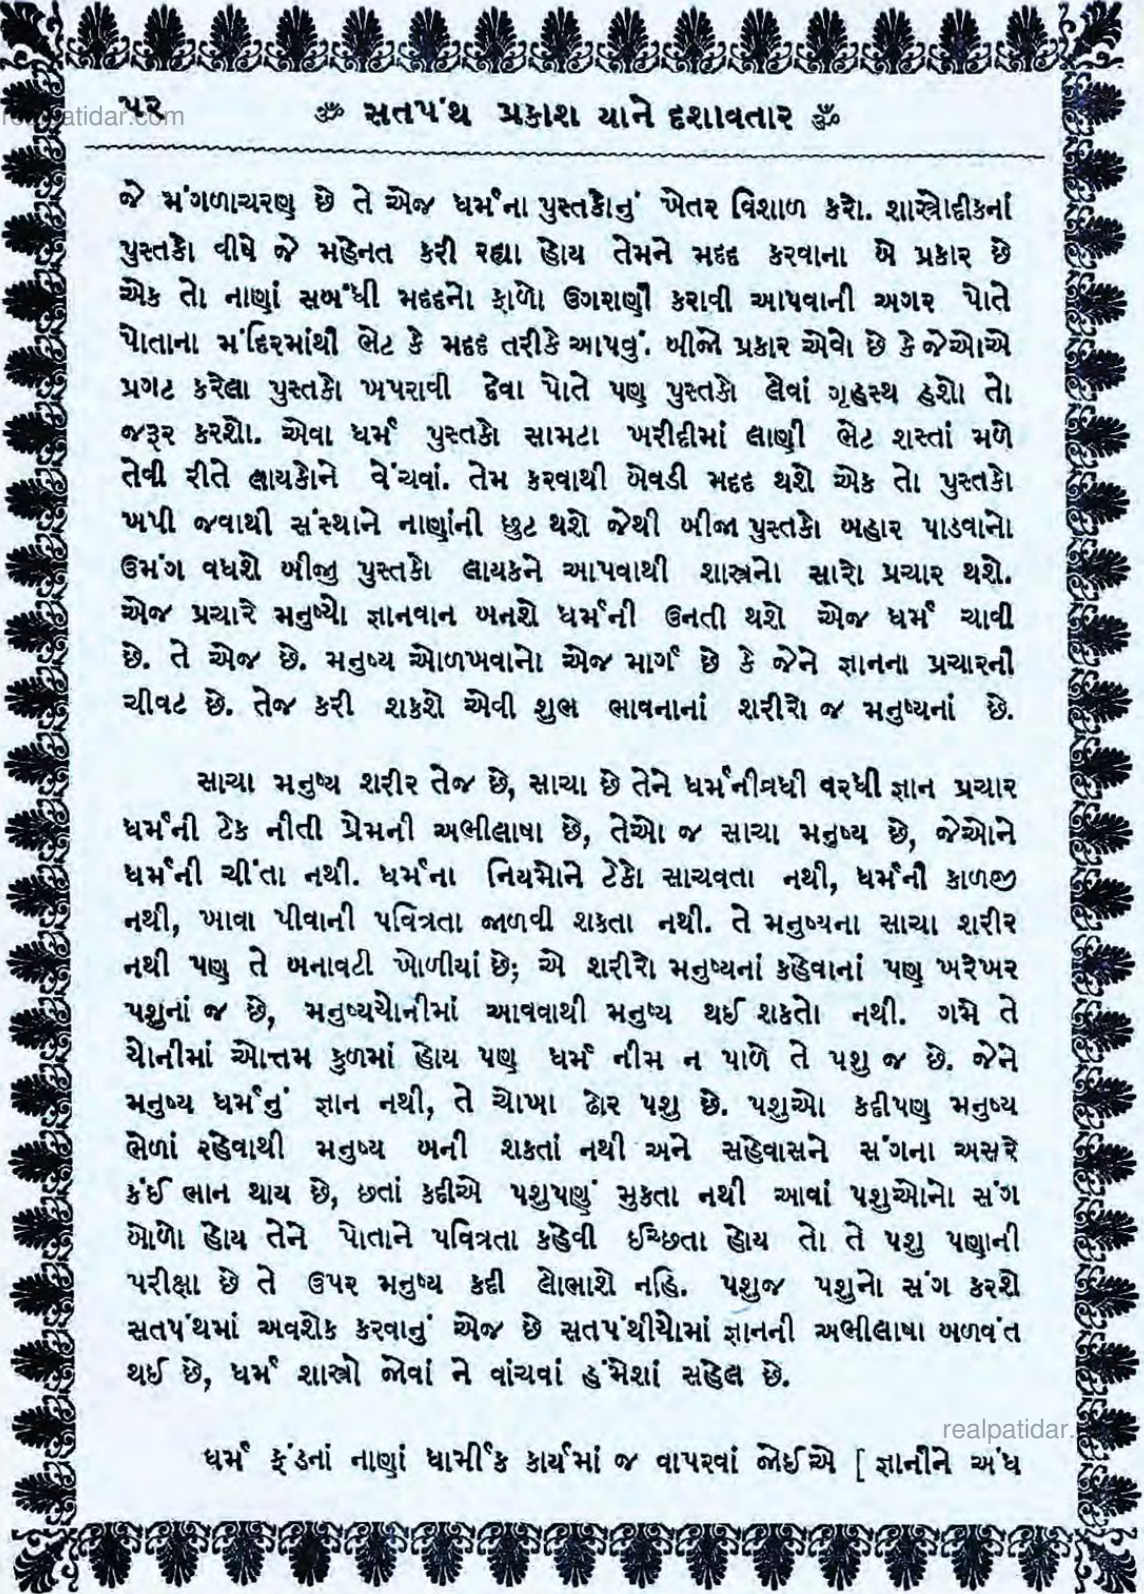 realpatidar.com
૫૨
ૐ સતપંથ પ્રકાશ યાને દશાવતાર ૐ
જે મંગળાચરણ છે તે એજ ધર્મના પુસ્તકોનું ખેતર વિશાળ કરો. શાસ્ત્રોદીકનાં
પુસ્તકો વીષે જે મહેનત કરી રહ્યા હોય તેમને મદદ કરવાના બે પ્રકાર છે
એક તો નાણાં સબંધી મદદનો ફાળો ઉગરાણી કરાવી આપવાની અગર પોતે
પોતાના મંદિરમાંથી ભેટ કે મદદ તરીકે આપવું. બીજો પ્રકાર એવો છે કે જેઓએ
પ્રગટ કરેલા પુસ્તકો ખપરાવી દેવા પોતે પણ પુસ્તકો લેવાં ગૃહસ્થ હશો તો
જરૂર કરશો. એવા ધર્મ પુસ્તકો સામટા ખરીદીમાં લાણી ભેટ શસ્તાં મળે
તેવી રીતે લાયકોને વેંચવાં. તેમ કરવાથી બેવડી મદદ થશે એક તો પુસ્તકો
ખપી જવાથી સંસ્થાને નાણાંની છુટ થશે જેથી બીજા પુસ્તકો બહાર પાડવાનો
ઉમંગ વધશે બીજી પુસ્તકો લાયકને આપવાથી શાસ્ત્રનો સારો પ્રચાર થશે.
એજ પ્રચારે મનુષ્યો જ્ઞાનવાન બનશે ધર્મની ઉનતી થશે એજ ધર્મ ચાવી
છે. તે એજ છે. મનુષ્ય ઓળખવાનો એજ માર્ગ છે કે જેને જ્ઞાનના પ્રચારની
ચીવટ છે. તેજ કરી શકશે એવી શુભ ભાવનાનાં શરીરો જ મનુષ્યનાં છે.
સાચા મનુષ્ય શરીર તેજ છે, સાચા છે તેને ધર્મનીવધી વરધી જ્ઞાન પ્રચાર
ધર્મની ટેક નીતી પ્રેમની અભીલાષા છે, તેઓ જ સાચા મનુષ્ય છે, જેઓને
ધર્મની ચીંતા નથી. ધર્મના નિયમોને ટેકો સાચવતા નથી, ધર્મની કાળજી
નથી, ખાવા પીવાની પવિત્રતા જાળવી શકતા નથી. તે મનુષ્યના સાચા શરીર
નથી પણ તે બનાવટી ખોળીયાં છે; એ શરીરો મનુષ્યનાં કહેવાનાં પણ ખરેખર
પશુનાં જ છે, મનુષ્યયોનીમાં આવવાથી મનુષ્ય થઈ શકતો નથી. ગમે તે
યોનીમાં ઓત્તમ કુળમાં હોય પણ ધર્મ નીમ ન પાળે તે પશુ જ છે. જેને
મનુષ્ય ધર્મનું જ્ઞાન નથી, તે ચોખા ઢોર પશુ છે. પશુએો કદીપણ મનુષ્ય
ભેળાં રહેવાથી મનુષ્ય બની શકતાં નથી અને સહેવાસને સંગના અસરે
કંઈ ભાન થાય છે, છતાં કદીએ પશુપણું મુકતા નથી આવાં પશુઓનો સંગ
ખોળો હોય તેને પોતાને પવિત્રતા કહેવી ઈચ્છિતા હોય તો તે પશુ પણાની
પરીક્ષા છે તે ઉપર મનુષ્ય કદી લોભાશે નહિ. પશુજ પશુનો સંગ કરશે
સતપંથમાં અવશેક કરવાનું એજ છે સતપંથીયોમાં જ્ઞાનની અભીલાષા બળવંત
થઈ છે, ધર્મ શાસ્ત્રો જોવાં ને વાંચવાં હંમેશાં સહેલ છે.
realpatidar.
ધર્મ ફંડનાં નાણાં ધાર્મીક કાર્યમાં જ વાપરવાં જોઈએ [ જ્ઞાનીને અંધ